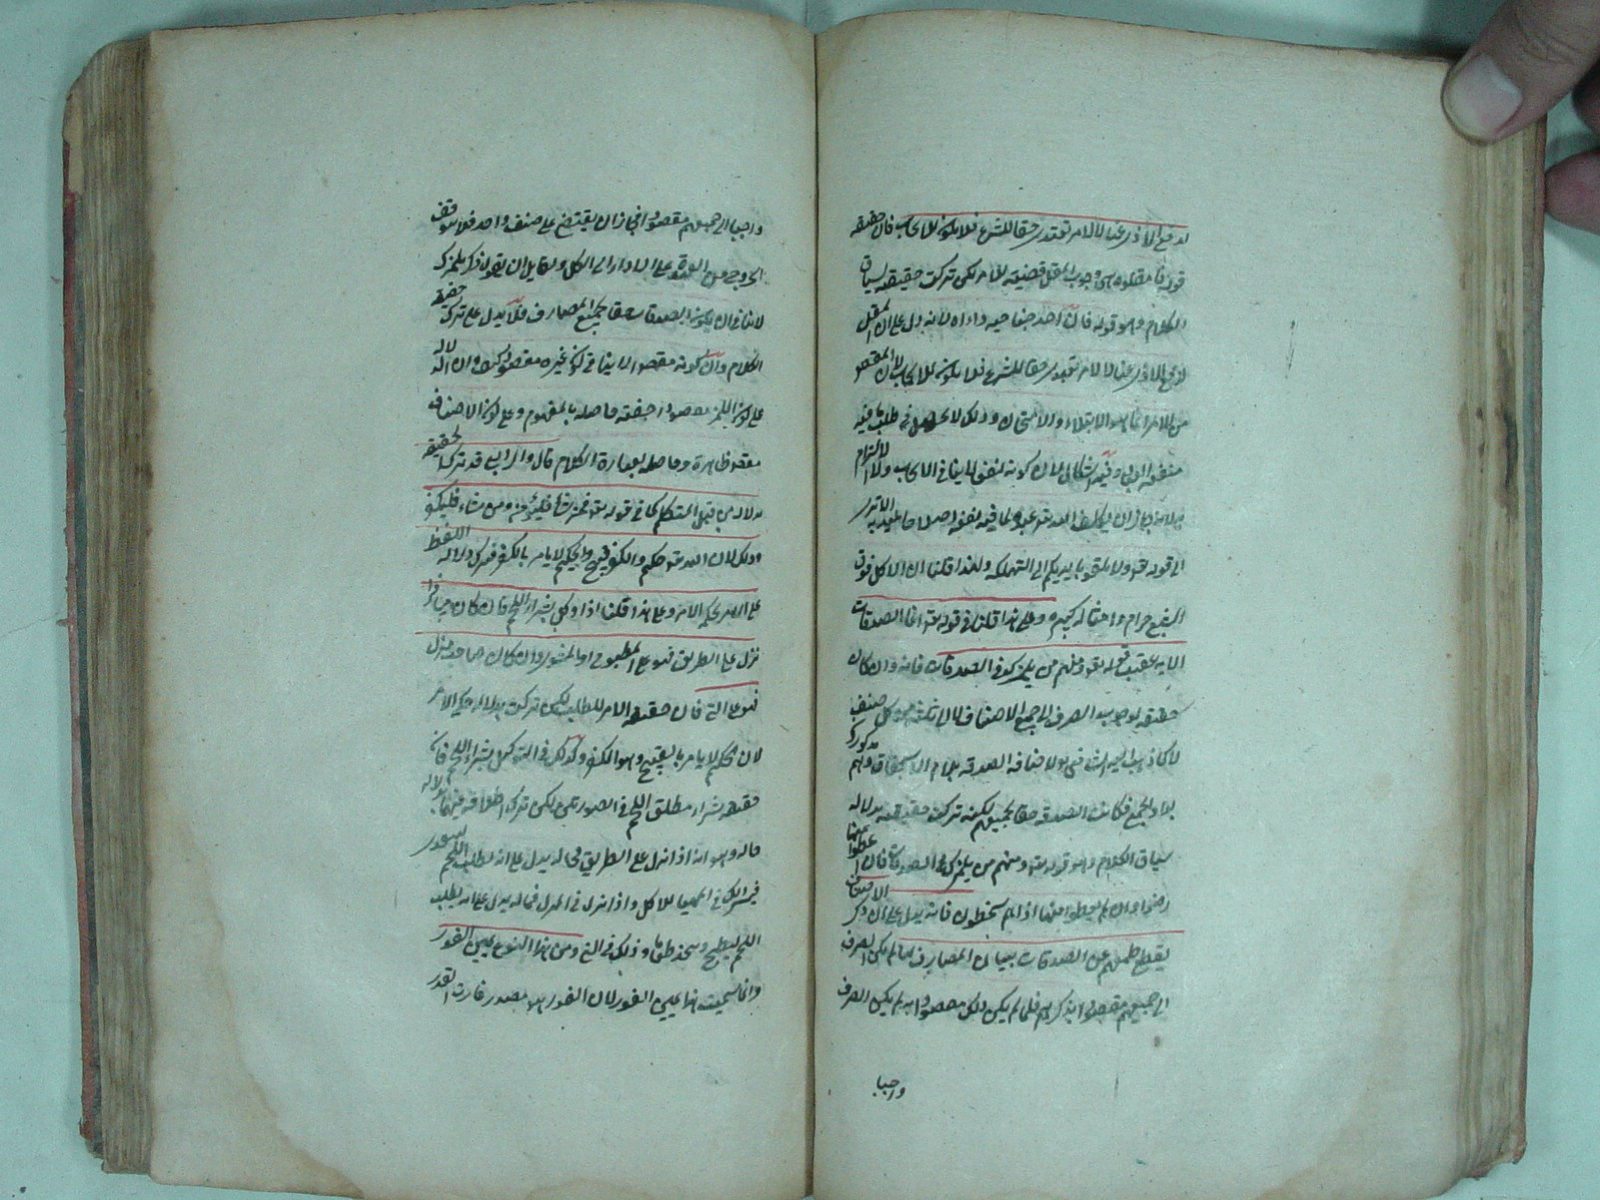 لدفع الاذى عنا لا لامر تعبدى حقا للشرع فلا يكون للايجاب فان حقيقة
قوله فامقلوه هى وجوب المقل قضية للامر لكن تركت حقيقته بسياق
الكلام وهو قوله فان احد جناحيه داء اه لانه دل على ان المقل
لدفع الاذى عنا لا لامر تعبدى حقا للشرع فلا يكون للايجاب لان المقصود
من الامر انما هو الابتلاء والامتحان وذلك لا يحصل فى طلب ما فيه
منفعة وفيه اشكال لان كونه لنفعنا لا ينافى الايجاب والالزام
الله تعالى عبده لما فيه نفعه
الى قوله تعالى ولا تلقوا بايديكم الى التهلكة ولهذا قلنا ان الاكل فوق
الشبع حرام وعلى هذا قلنا فى قوله تعالى انما الصدقات
الاية عقيب قوله تعالى ومنهم من يلمزك فى الصدقات فانه وان كان
حقيقة لوجوب الصرف الى جميع الاصناف لان ثلثة من كل صنف
كما ذهب اليه الشافعى لاضافة الصدقة بلام الاستحقاق وهم مذكورون
بلا والجمع فكانت الصدقة حقا لجميعهم لكنه تركت حقيقته بدلالة
سياق الكلام وهو قوله تعالى ومنهم من يلمزك فى الصدقات فان اعطوا منها
رضوا وان لم يعطوا منها اذا هم يسخطون فانه يدل على ان ذكر الاصناف
يقطع طمعهم عن الصدقات ببيان المصارف لما لم يكن الصرف
الى جميعهم مقصودا بذكرهم فلما لم يكن ذلك مقصودا به لم يكن الصرف
واجبا
واجبا الى جميعهم مقصودا فجاز ان يقتصر على صنف واحد فلا يتوقف
الخروج من العهدة على الاداء الى الكل ولقايل ان يقول ذكر يلمزك
لا ينافى ان يكون الصدقات حقا لجميع المصارف فلا يدل على ترك حقيقة
الكلام وان كونه مقصودا لا ينافى كون غيره مقصودا كيف وان دلالته
على كون اللمز مقصودا خفية حاصلة بالمفهوم وعلى كون الاصناف
مقصودا ظاهرة وحاصلة بعبارة الكلام قال والرابع قد تترك الحقيقة
بدلالة من قبل المتكلم كما فى قوله تعالى فمن شاء فليؤمن ومن شاء فليكفر
وذلك لان الله تعالى حكيم والكفر قبيح والحكيم لا يامر بالكفر فيترك دلالة اللفظ
على الامر بحكم الامر وعلى هذا قلنا اذا وكل بشراء اللحم فان كان مسافرا
نزل على الطريق فهو على المطبوخ او المشوى وان كان صاحب منزل
فهو على النئ فان حقيقة الامر للطلب لكن تركت بدلالة حكم الامر
لان الحكيم لا يامر بالقبيح وهو الكفر وكذلك فى التوكيل بشراء اللحم فان
حقيقته شراء مطلق اللحم فى الصورتين لكن ترك اطلاقه فيهما بدلالة
حاله وهو انه اذا نزل على الطريق فحاله يدل على انه لطلب اللحم
المهيا للاكل واذا نزل فى المنزل فحاله يدل على انه يطلب
اللحم ليطبخ وذلك فى النئ ومن هذا النوع يمين الفور
وانما سميت هذا يمين الفور لان الفور هو مصدر فارت القدر